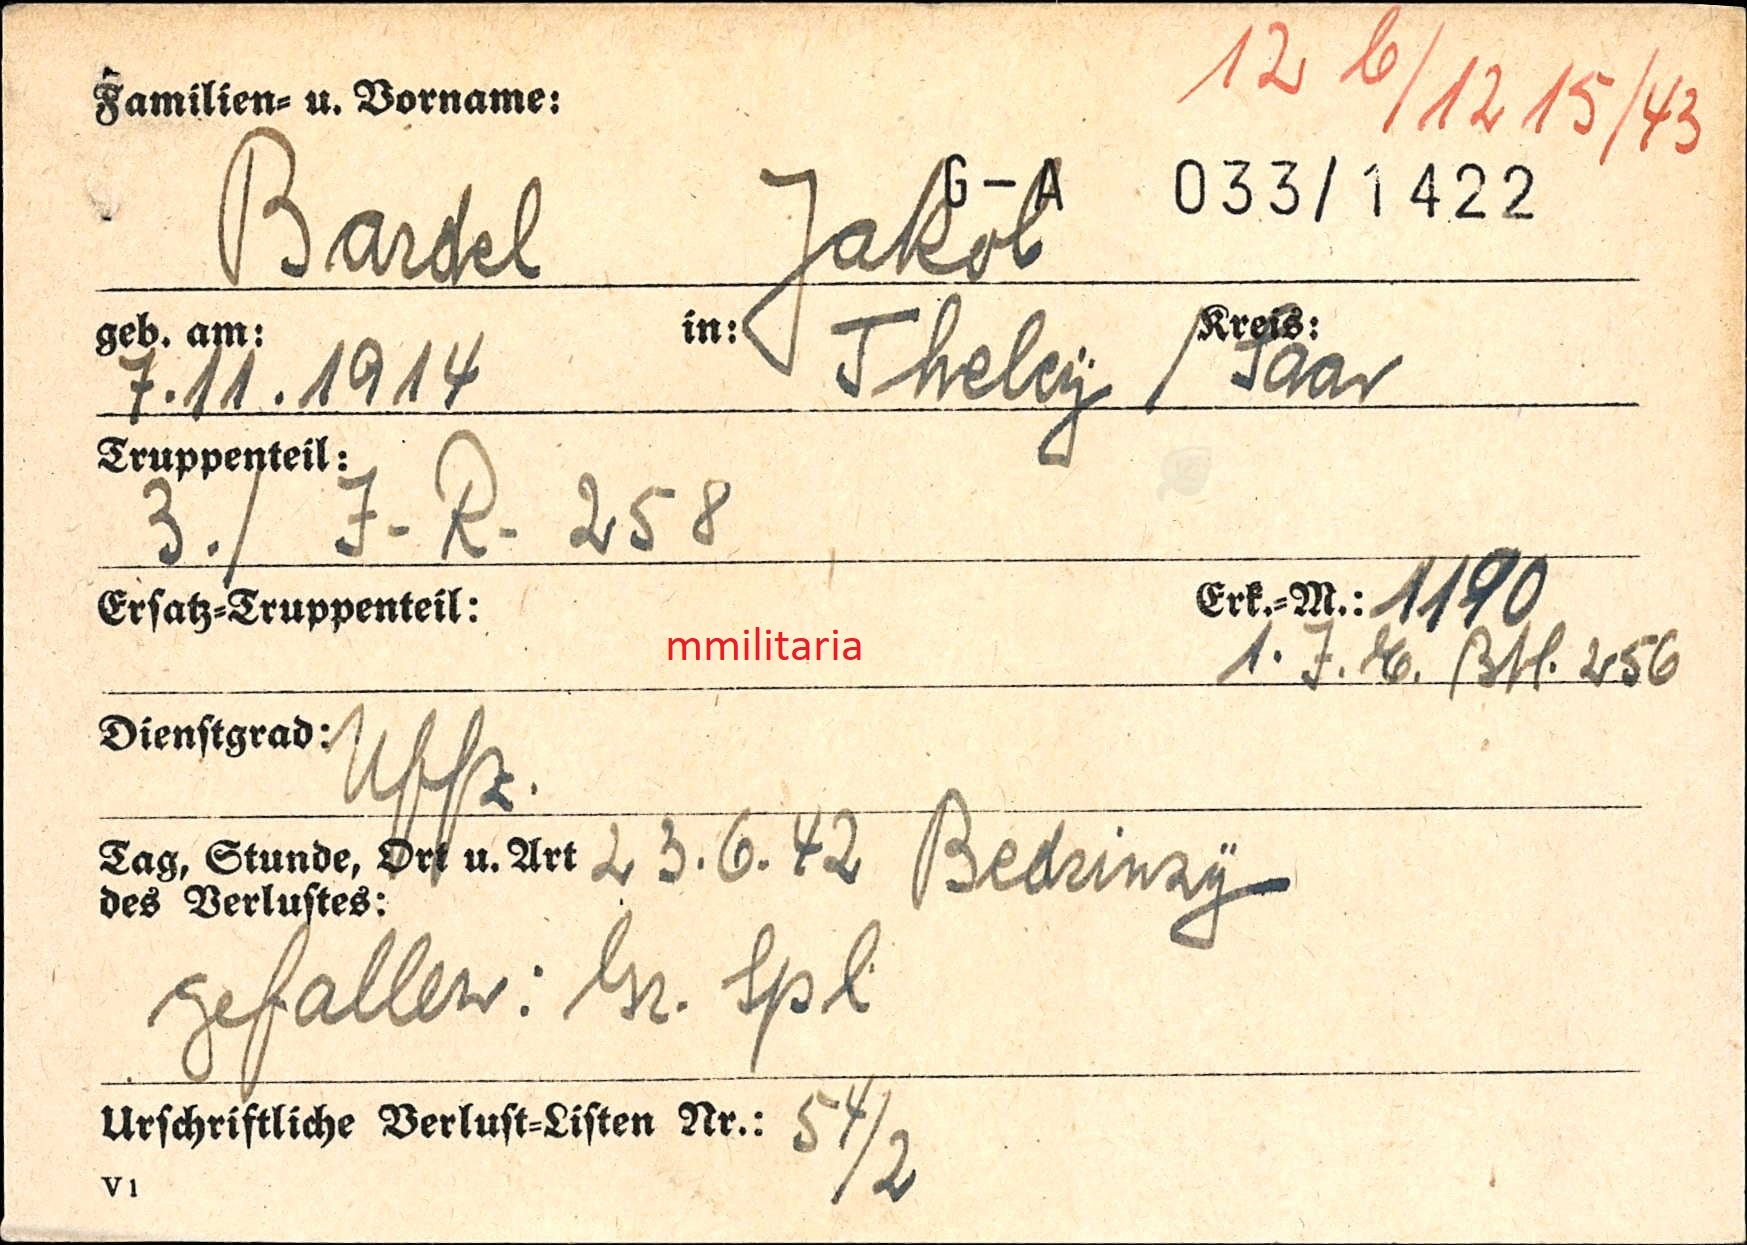 12 b/12 15/43
Familien- u. Vorname:
G-A 033/1422
Bardel Jakob
geb. am: in: Kreis:
7.11.1914 Theley / Saar
Truppenteil:
3./ J-R- 258
Ersatz-Truppenteil: Erk.-M.: 1190
mmilitaria 1. J. E. Btl. 256
Dienstgrad: Uffz.
Tag, Stunde, Ort u. Art 23.6.42
des Verlustes:
gefallen: Gr. Spl
Urschriftliche Verlust-Listen Nr.: 54/2
V 1